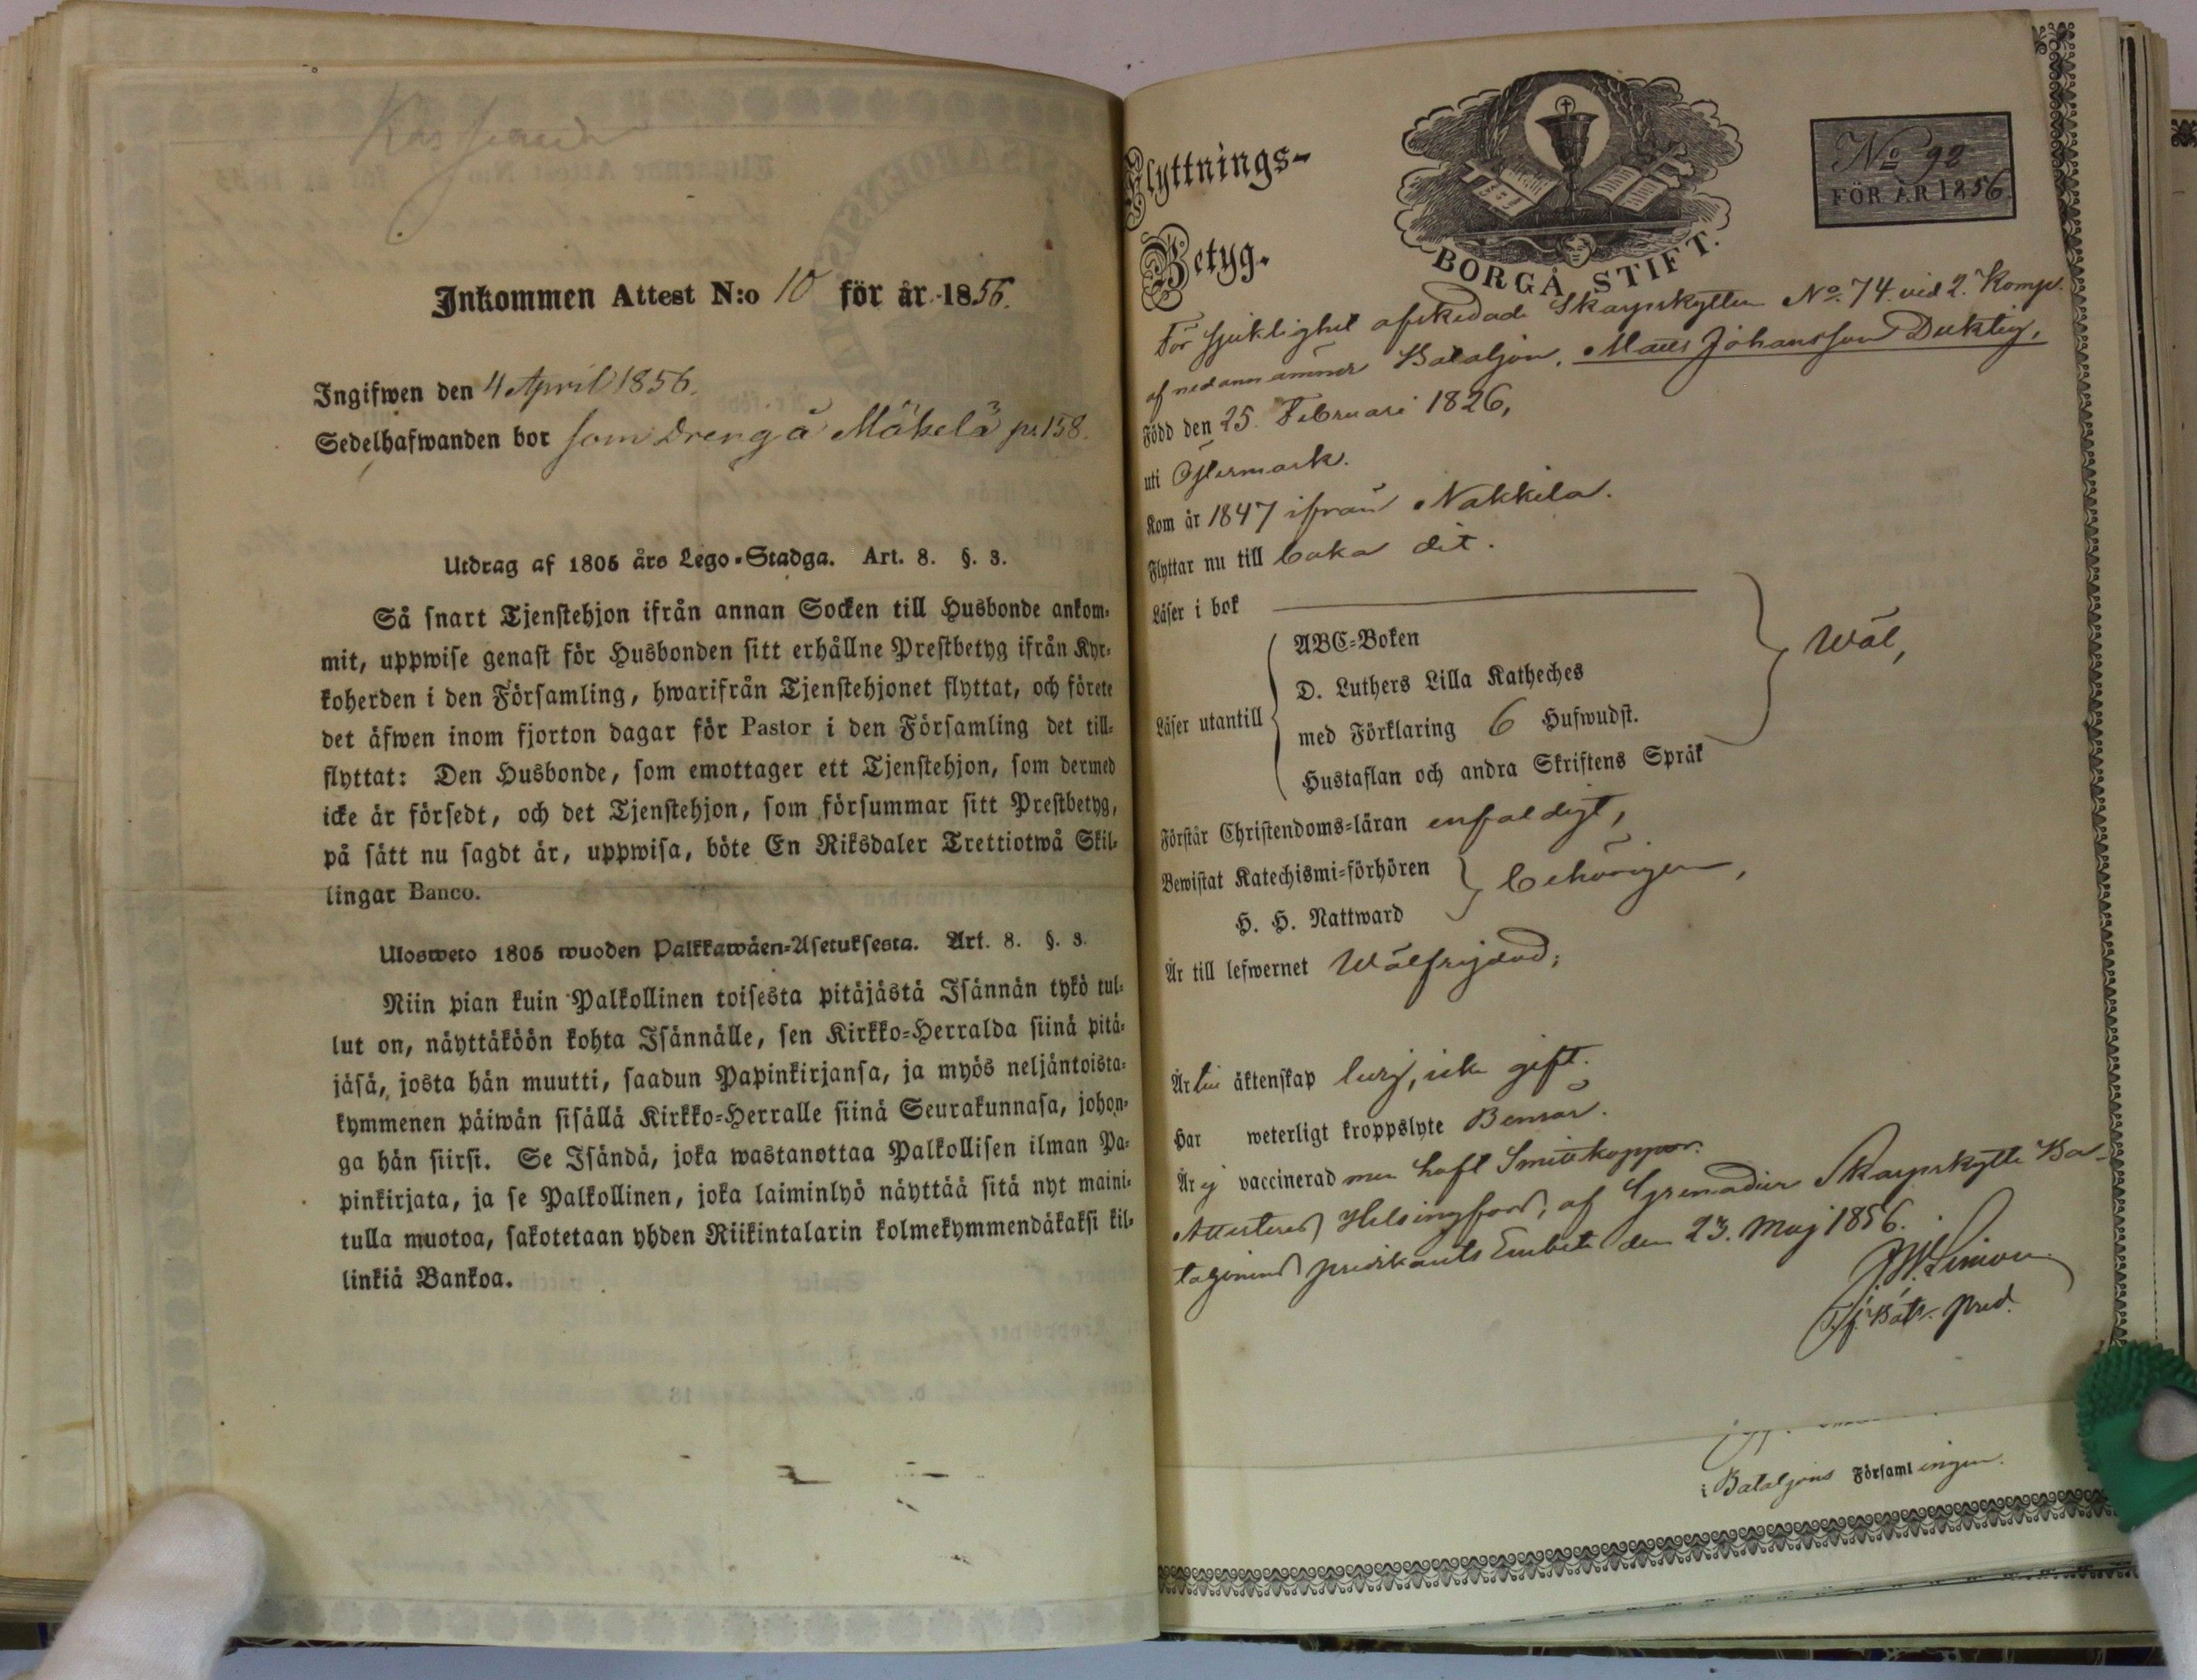 Inkommen Attest N:o 10 för år 1856.
Ingifwen den 4 April 1856.
Sedelhafwanden bor som Dreng å Mäkelä p. 158.
Utdrag af 1805 års Lego-Stadga. Art. 8. §. 3.
Så snart Tjenstehjon ifrån annan Socken till Husbonde ankom-
mit, uppwise genast för Husbonden sitt erhållne Prestbetyg ifrån Kyr-
koherden i den Församling, hwarifrån Tjenstehjonet flyttat, och förete
det äfwen inom fjorton dagar för Pastor i den Församling det till-
flyttat: Den Husbonde, som emottager ett Tjenstehjon, som dermed
icke är försedt, och det Tjenstehjon, som försummar sitt Prestbetyg,
på sätt nu sagdt är, uppwisa, böte En Riksdaler Trettiotwå Skil-
lingar Banco.
Ulosweto 1805 wuoden Palkkawäen-Asetuksesta. Art. 8. §. 3.
Niin pian kuin Palkollinen toisesta pitäjästä Isännän tykö tul-
lut on, näyttäköön kohta Isännälle, sen Kirkko-Herralda siinä pitä-
jäsä, josta hän muutti, saadun Papinkirjansa, ja myös neljäntoista-
kymmenen päiwän sisällä Kirkko-Herralle siinä Seurakunnasa, johon-
ga hän siirsi. Se Isändä, joka wastanottaa Palkollisen ilman Pa-
pinkirjata, ja se Palkollinen, joka laiminlyö näyttää sitä nyt maini-
tulla muotoa, sakotetaan yhden Riikintalarin kolmekymmendäkaksi kil-
linkiä Bankoa.
Flyttnings-
Betyg.
BORGÅ STIFT.
No 92
FÖR ÅR 1856.
För sjuklighet afskedade Skarpskytten No. 74. vid 2. Komp.
af nedannämnde Bataljon, Matts Johansson Duktig,
Född den 25. Februari 1826,
uti Östermark.
Kom år 1847 ifrån Nakkila.
Flyttar nu till baka dit.
Läser i bok
ABC-Boken
D. Luthers Lilla Katheches
Wäl,
Läser utantill
med Förklaring 6 Hufwudst.
Hustaflan och andra Skriftens Språk
Förstår Christendoms-läran enfaldigt,
Bewistat Katechismi-förhören
behörigen,
H. H. Nattward
Är till lefwernet Wälfrejdad;
Är till äktenskap ledig, icke gift.
Har weterligt kroppslyte Bensår.
Är ej vaccinerad men haft Smittkoppor.
Attesterad Helsingfors, af Grenadier Skarpskytte Ba-
taljonens predikants Embete den 23. Maj 1856.
Tjf. Bat. Pred.
i Bataljons Församlingen.